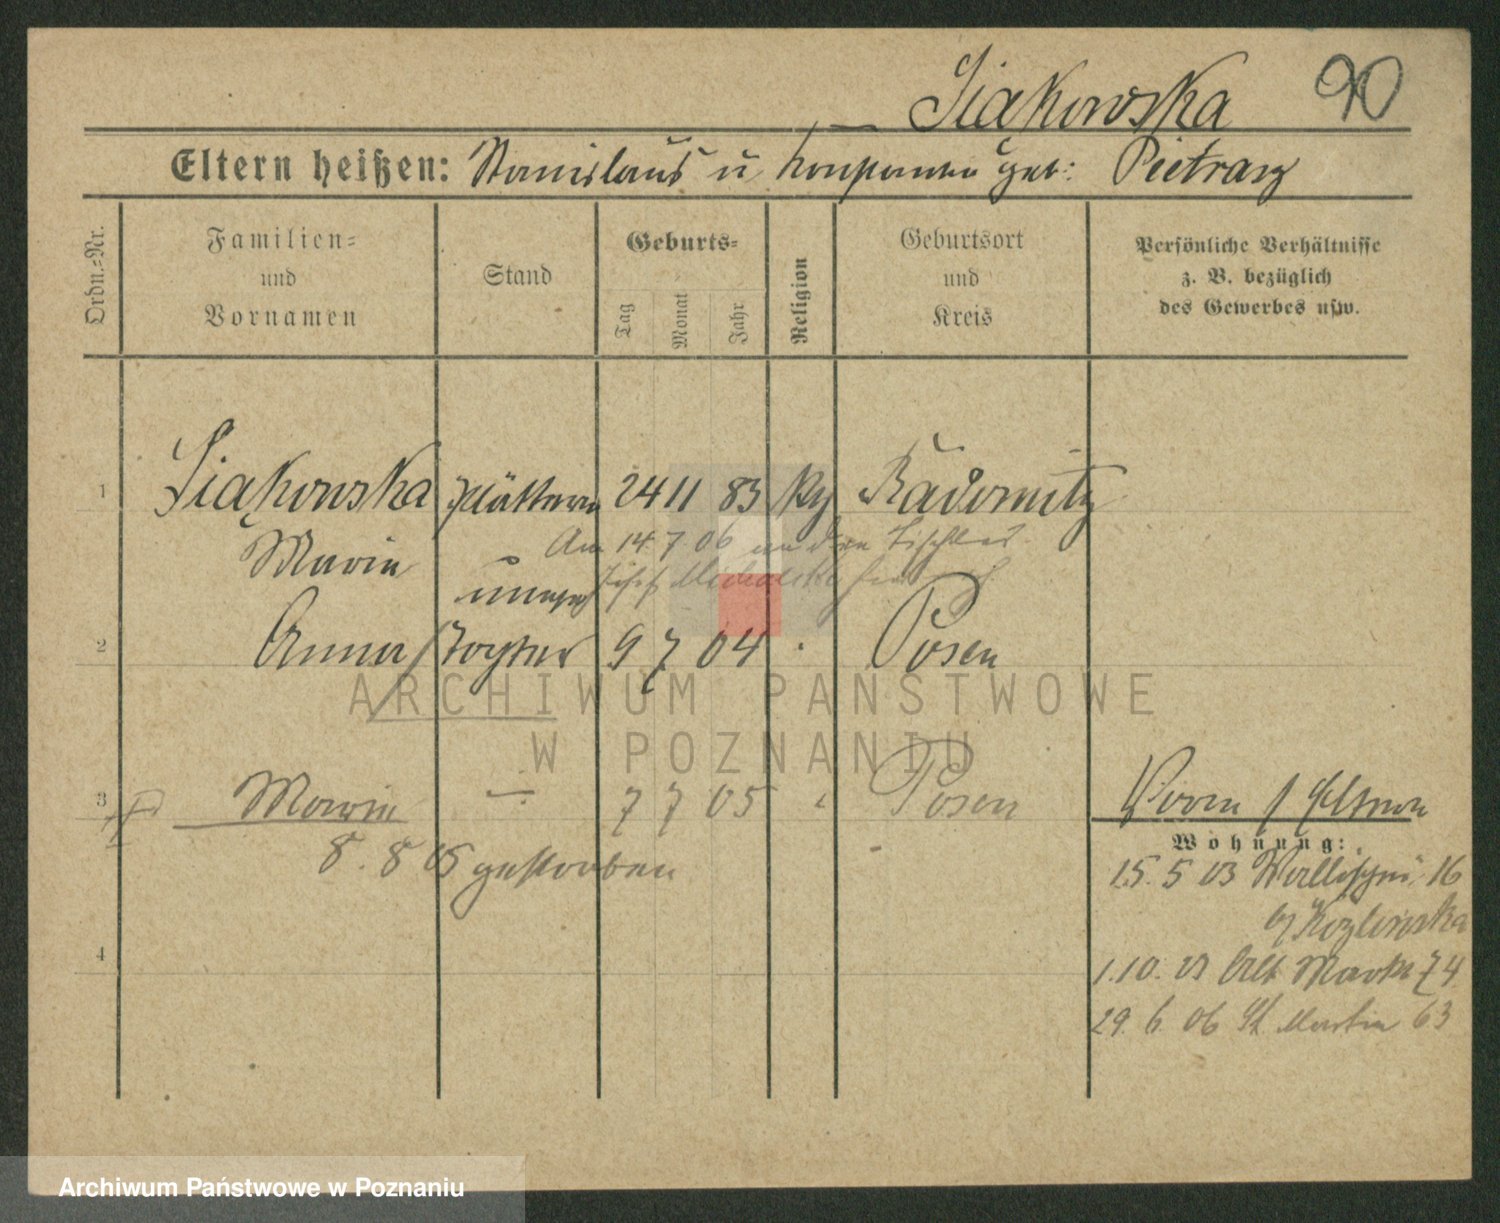 Siakowska 90
Eltern heißen: Stanislaus u Konstantia geb: Pietrasz
Ordn.-Nr.
Familien-
und
Vornamen
Stand
Geburts-
Tag
Monat
Jahr
Religion
Geburtsort
und
Kreis
Persönliche Verhältnisse
z. B. bezüglich
des Gewerbes usw.
1 Siakowska Plätterin 24 11 83 Radomitz
Am 14 7 06 an den Tischler
Maria
Josef
2 Anna Tochter 9 7 04 Posen
3 Maria 7 7 05 Posen
8. 8 05 gestorben
4
Wohnung:
15. 5 03 Wallischei 16
b/ Kozlowska
1. 10. 03 Alt Markt 74
29. 6. 06 St Martin 63
ARCHIWUM PAŃSTWOWE
W POZNANIU
Archiwum Państwowe w Poznaniu